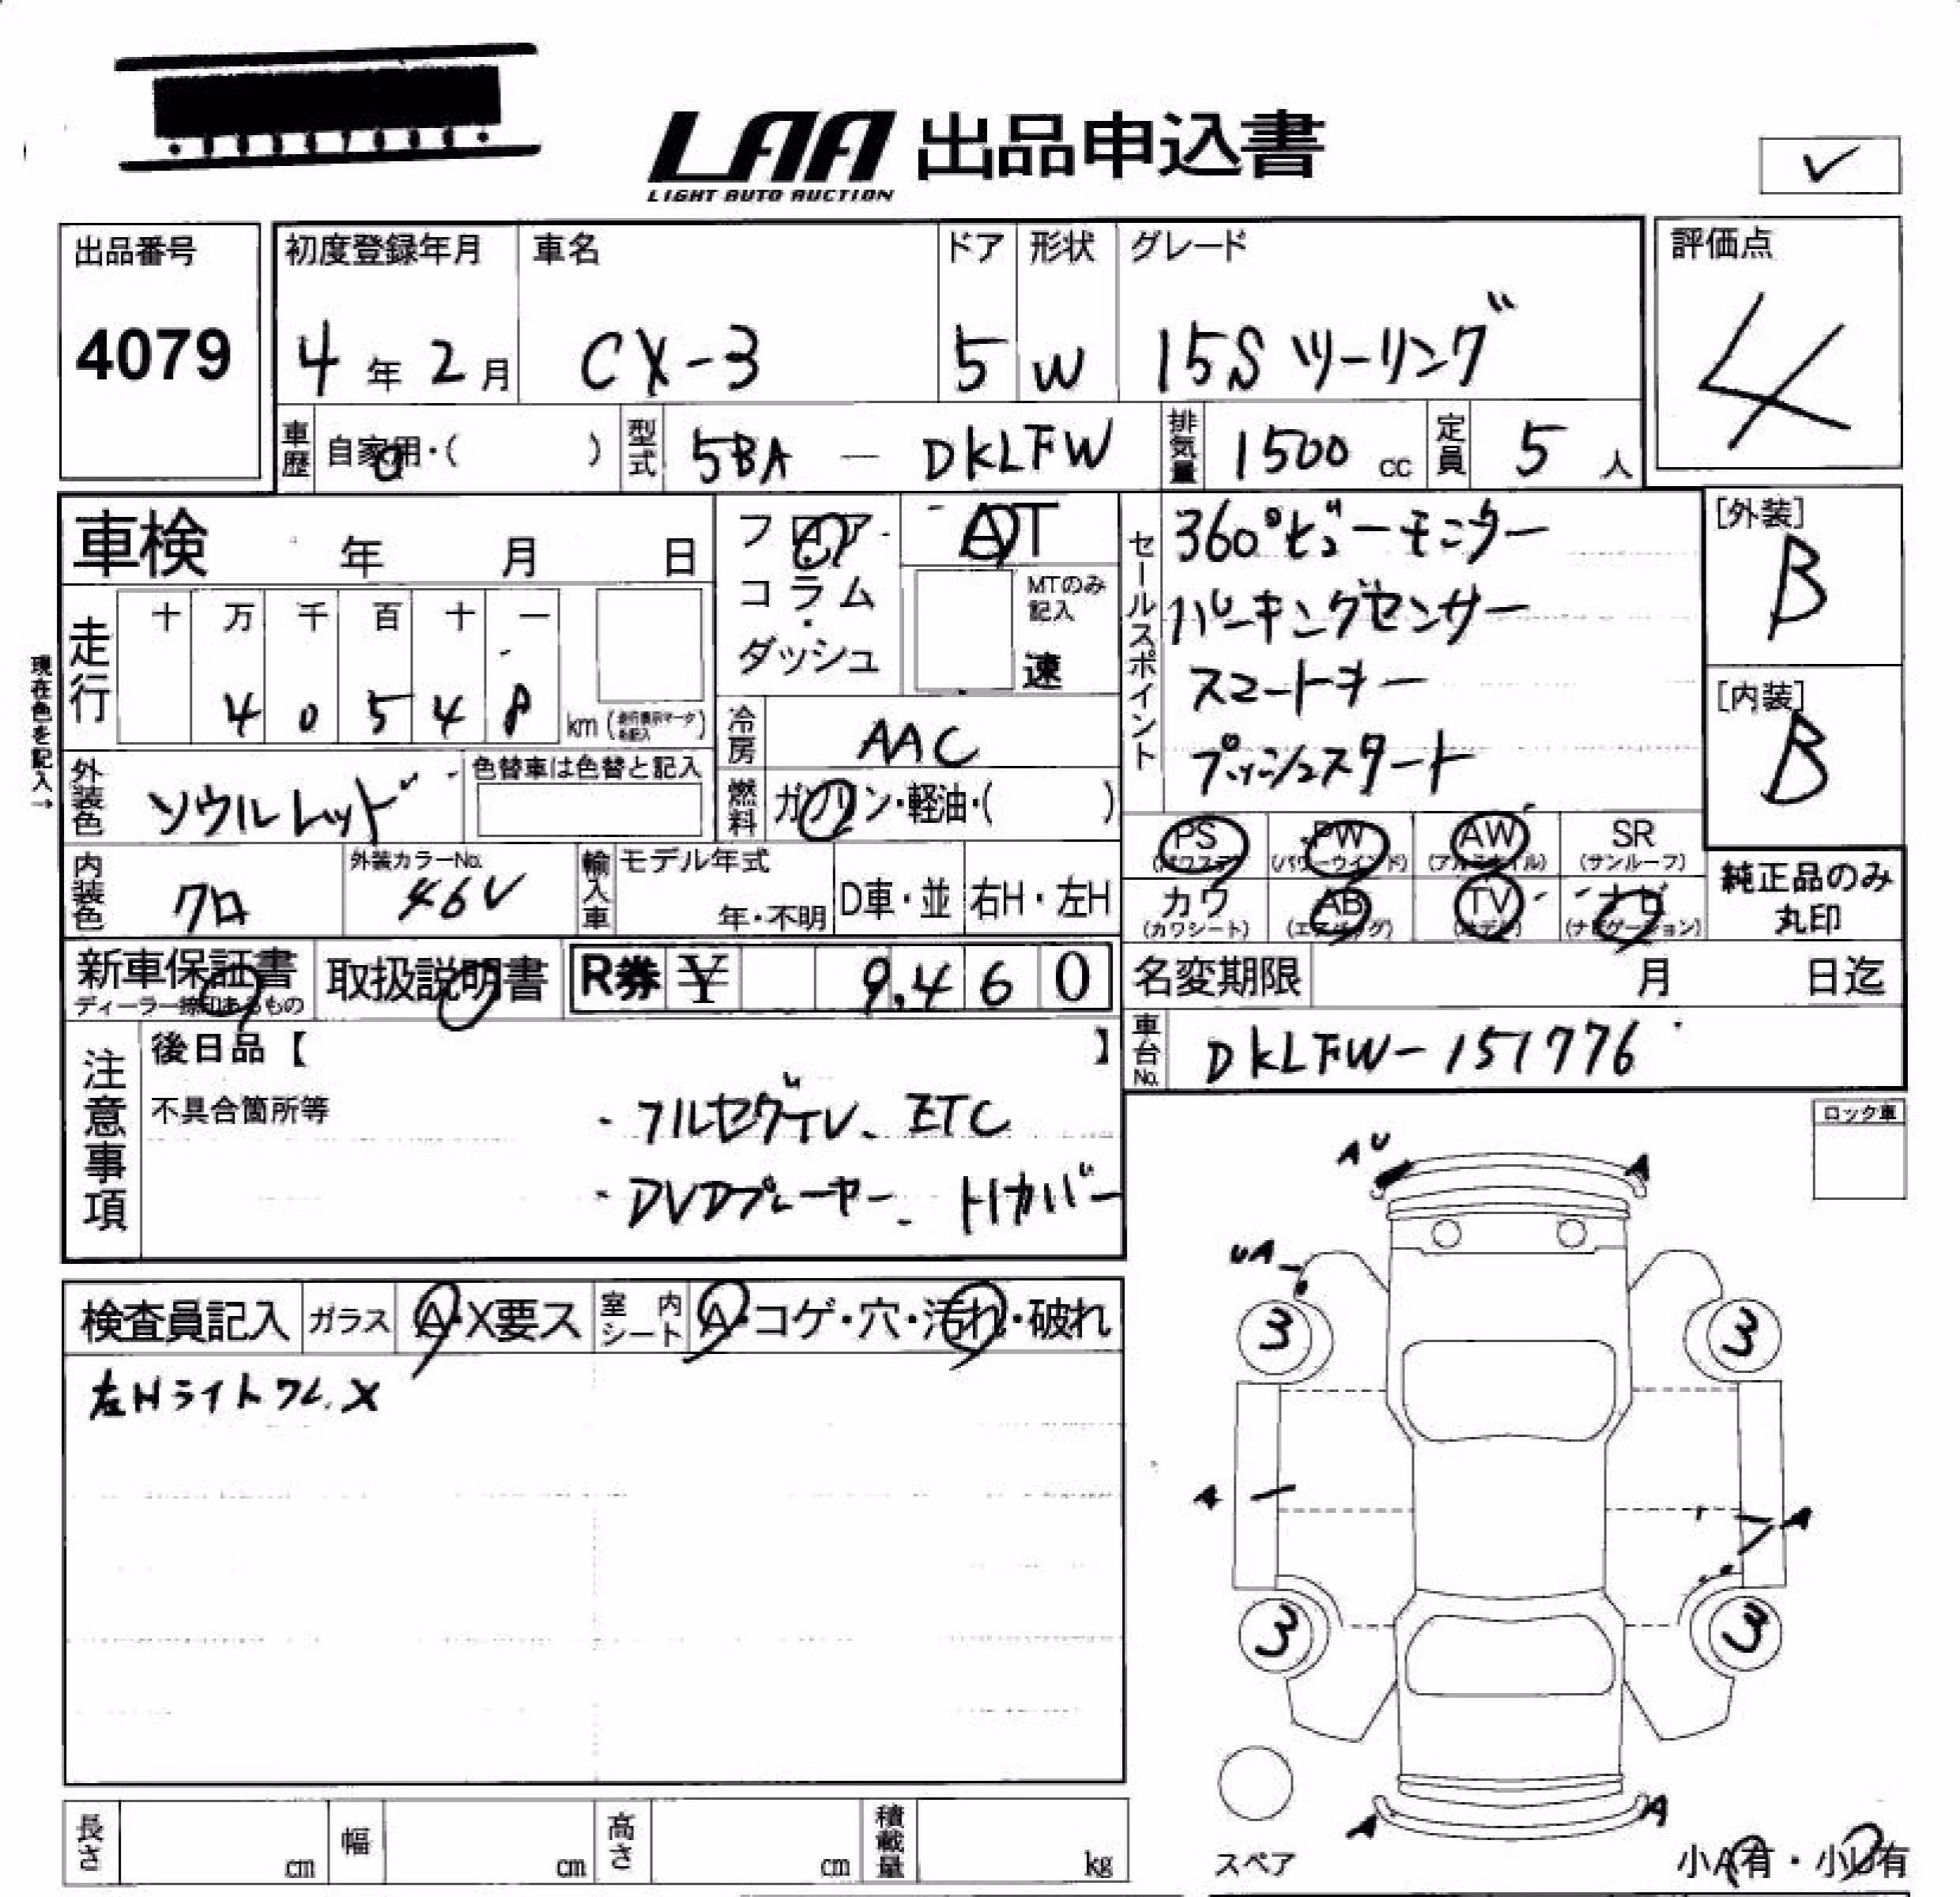 LAA 出品申込書
LIGHT AUTO AUCTION
✓
出品番号
4079
初度登録年月
4年2月
車名
CX-3
ドア
5
形状
W
グレード
15S ツーリング
評価点
4
車歴 自家用・( )
型式 5BA - DKLFW
排気量 1500 cc
定員 5 人
車検 年 月 日
フロア・コラム・ダッシュ
AT
MTのみ記入
速
セールスポイント
360°ビューモニター
パーキングセンサー
スマートキー
プッシュスタート
[外装]
B
[内装]
B
現在色を記入→
走行
十 万 千 百 十 一
4 0 5 4 8 km (走行表示マークを記入)
冷房 AAC
外装色 ソウルレッド
色替車は色替と記入
燃料 ガソリン・軽油・( )
内装色 クロ
外装カラーNo.
46V
輸入車 モデル年式
年・不明
D車・並
右H・左H
PS (パワステ)
PW (パワーウインド)
AW (アルミホイル)
SR (サンルーフ)
カワ (カワシート)
AB (エアバッグ)
TV
ナビ (ナビゲーション)
純正品のみ丸印
新車保証書
ディーラー捺印あるもの
取扱説明書
R券 ¥ 9,460
名変期限 月 日迄
車台No. DKLFW-151776
注意事項
後日品【 】
不具合箇所等
・フルセグTV、ETC
・DVDプレーヤー、トノカバー
ロック車
検査員記入
ガラス A・X要ス
室内シート A・コゲ・穴・汚れ・破れ
左Hライトワレ、X
AU
A
UA
3
3
A
A
3
3
A
A
スペア
小A有・小U有
長さ cm
幅 cm
高さ cm
積載量 kg